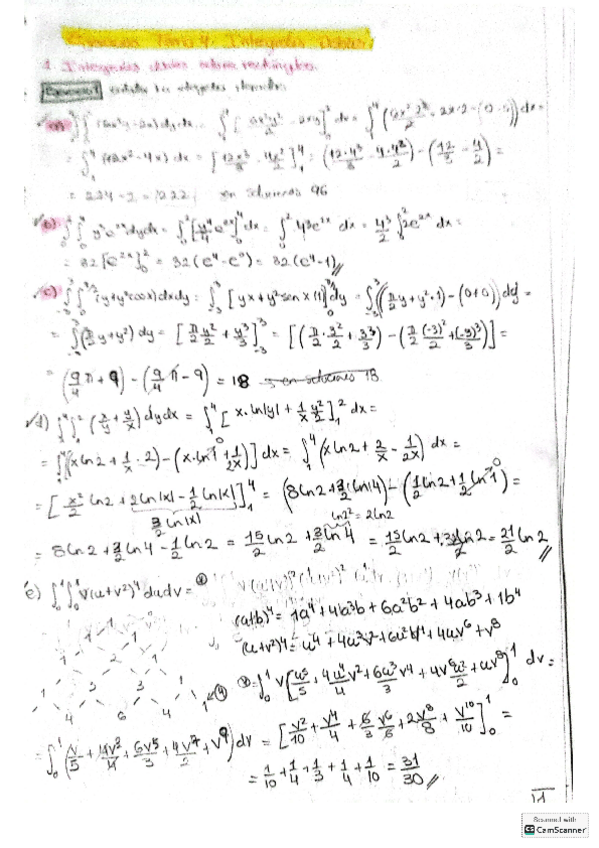 Ejercicios Tema 4. Integrales dobles.
1. Integrales dobles sobre rectángulos.
Ejercicio 1
= ∫₁⁴ (12x² - 4x) dx = [12x³/3 - 4x²/2]₁⁴ = (12·4³/3 - 4·4²/2) - (12/3 - 4/2) =
en soluciones 96
b) ∫₀² ∫₀⁴ y³e²ˣ dy dx = ∫₀² [y⁴/4 e²ˣ]₀⁴ dx = ∫₀² 4³e²ˣ dx = 4³/2 ∫₀² 2e²ˣ dx =
= 32 [e²ˣ]₀² = 32 (e⁴ - e⁰) = 32 (e⁴ - 1)
c) ∫₋₃³ ∫₀^(π/2) (y + y² cos x) dx dy = ∫₋₃³ [yx + y² sen x]₀ dy = ∫₋₃³ ((π/2 y + y²·1) - (0+0)) dy =
= ∫₋₃³ (π/2 y + y²) dy = [π/2 y²/2 + y³/3]₋₃³ = [(π/2 · 3²/2 + 3³/3) - (π/2 (-3)²/2 + (-3)³/3)] =
= (9/4 π + 9) - (9/4 π - 9) = 18
d) ∫₁⁴ ∫₁² (x/y + y/x) dy dx = ∫₁⁴ [x·ln|y| + 1/x y²/2]₁² dx =
= ∫₁⁴ [(x ln2 + 1/x · 2) - (x·ln1 + 1/2x)] dx = ∫₁⁴ (x ln2 + 2/x - 1/2x) dx =
= [x²/2 ln2 + 2 ln|x| - 1/2 ln|x|]₁⁴ = (8 ln2 + 3/2 ln|4|) - (1/2 ln2 + 1/2 ln1) =
3/2 ln|x| ln2² = 2 ln2
= 8 ln2 + 3/2 ln4 - 1/2 ln2 = 15/2 ln2 + 3/2 ln4 = 15/2 ln2 + 3 ln2 = 21/2 ln2
e) ∫₀¹ ∫₀¹ v(u+v²)⁴ du dv =
(a+b)⁴ = 1a⁴ + 4a³b + 6a²b² + 4ab³ + 1b⁴
(u+v²)⁴ = u⁴ + 4u³v² + 6u²v⁴ + 4uv⁶ + v⁸
= ∫₀¹ v [u⁵/5 + 4u⁴/4 v² + 6u³/3 v⁴ + 4v⁶ u²/2 + uv⁸]₀¹ dv =
1 4 6 4 1
= ∫₀¹ (v/5 + 4v³/4 + 6v⁵/3 + 4v⁷/2 + v⁹) dv = [v²/10 + v⁴/4 + 6/3 v⁶/6 + 2v⁸/8 + v¹⁰/10]₀¹ =
= 1/10 + 1/4 + 1/3 + 1/4 + 1/10 = 31/30
Scanned with
CamScanner